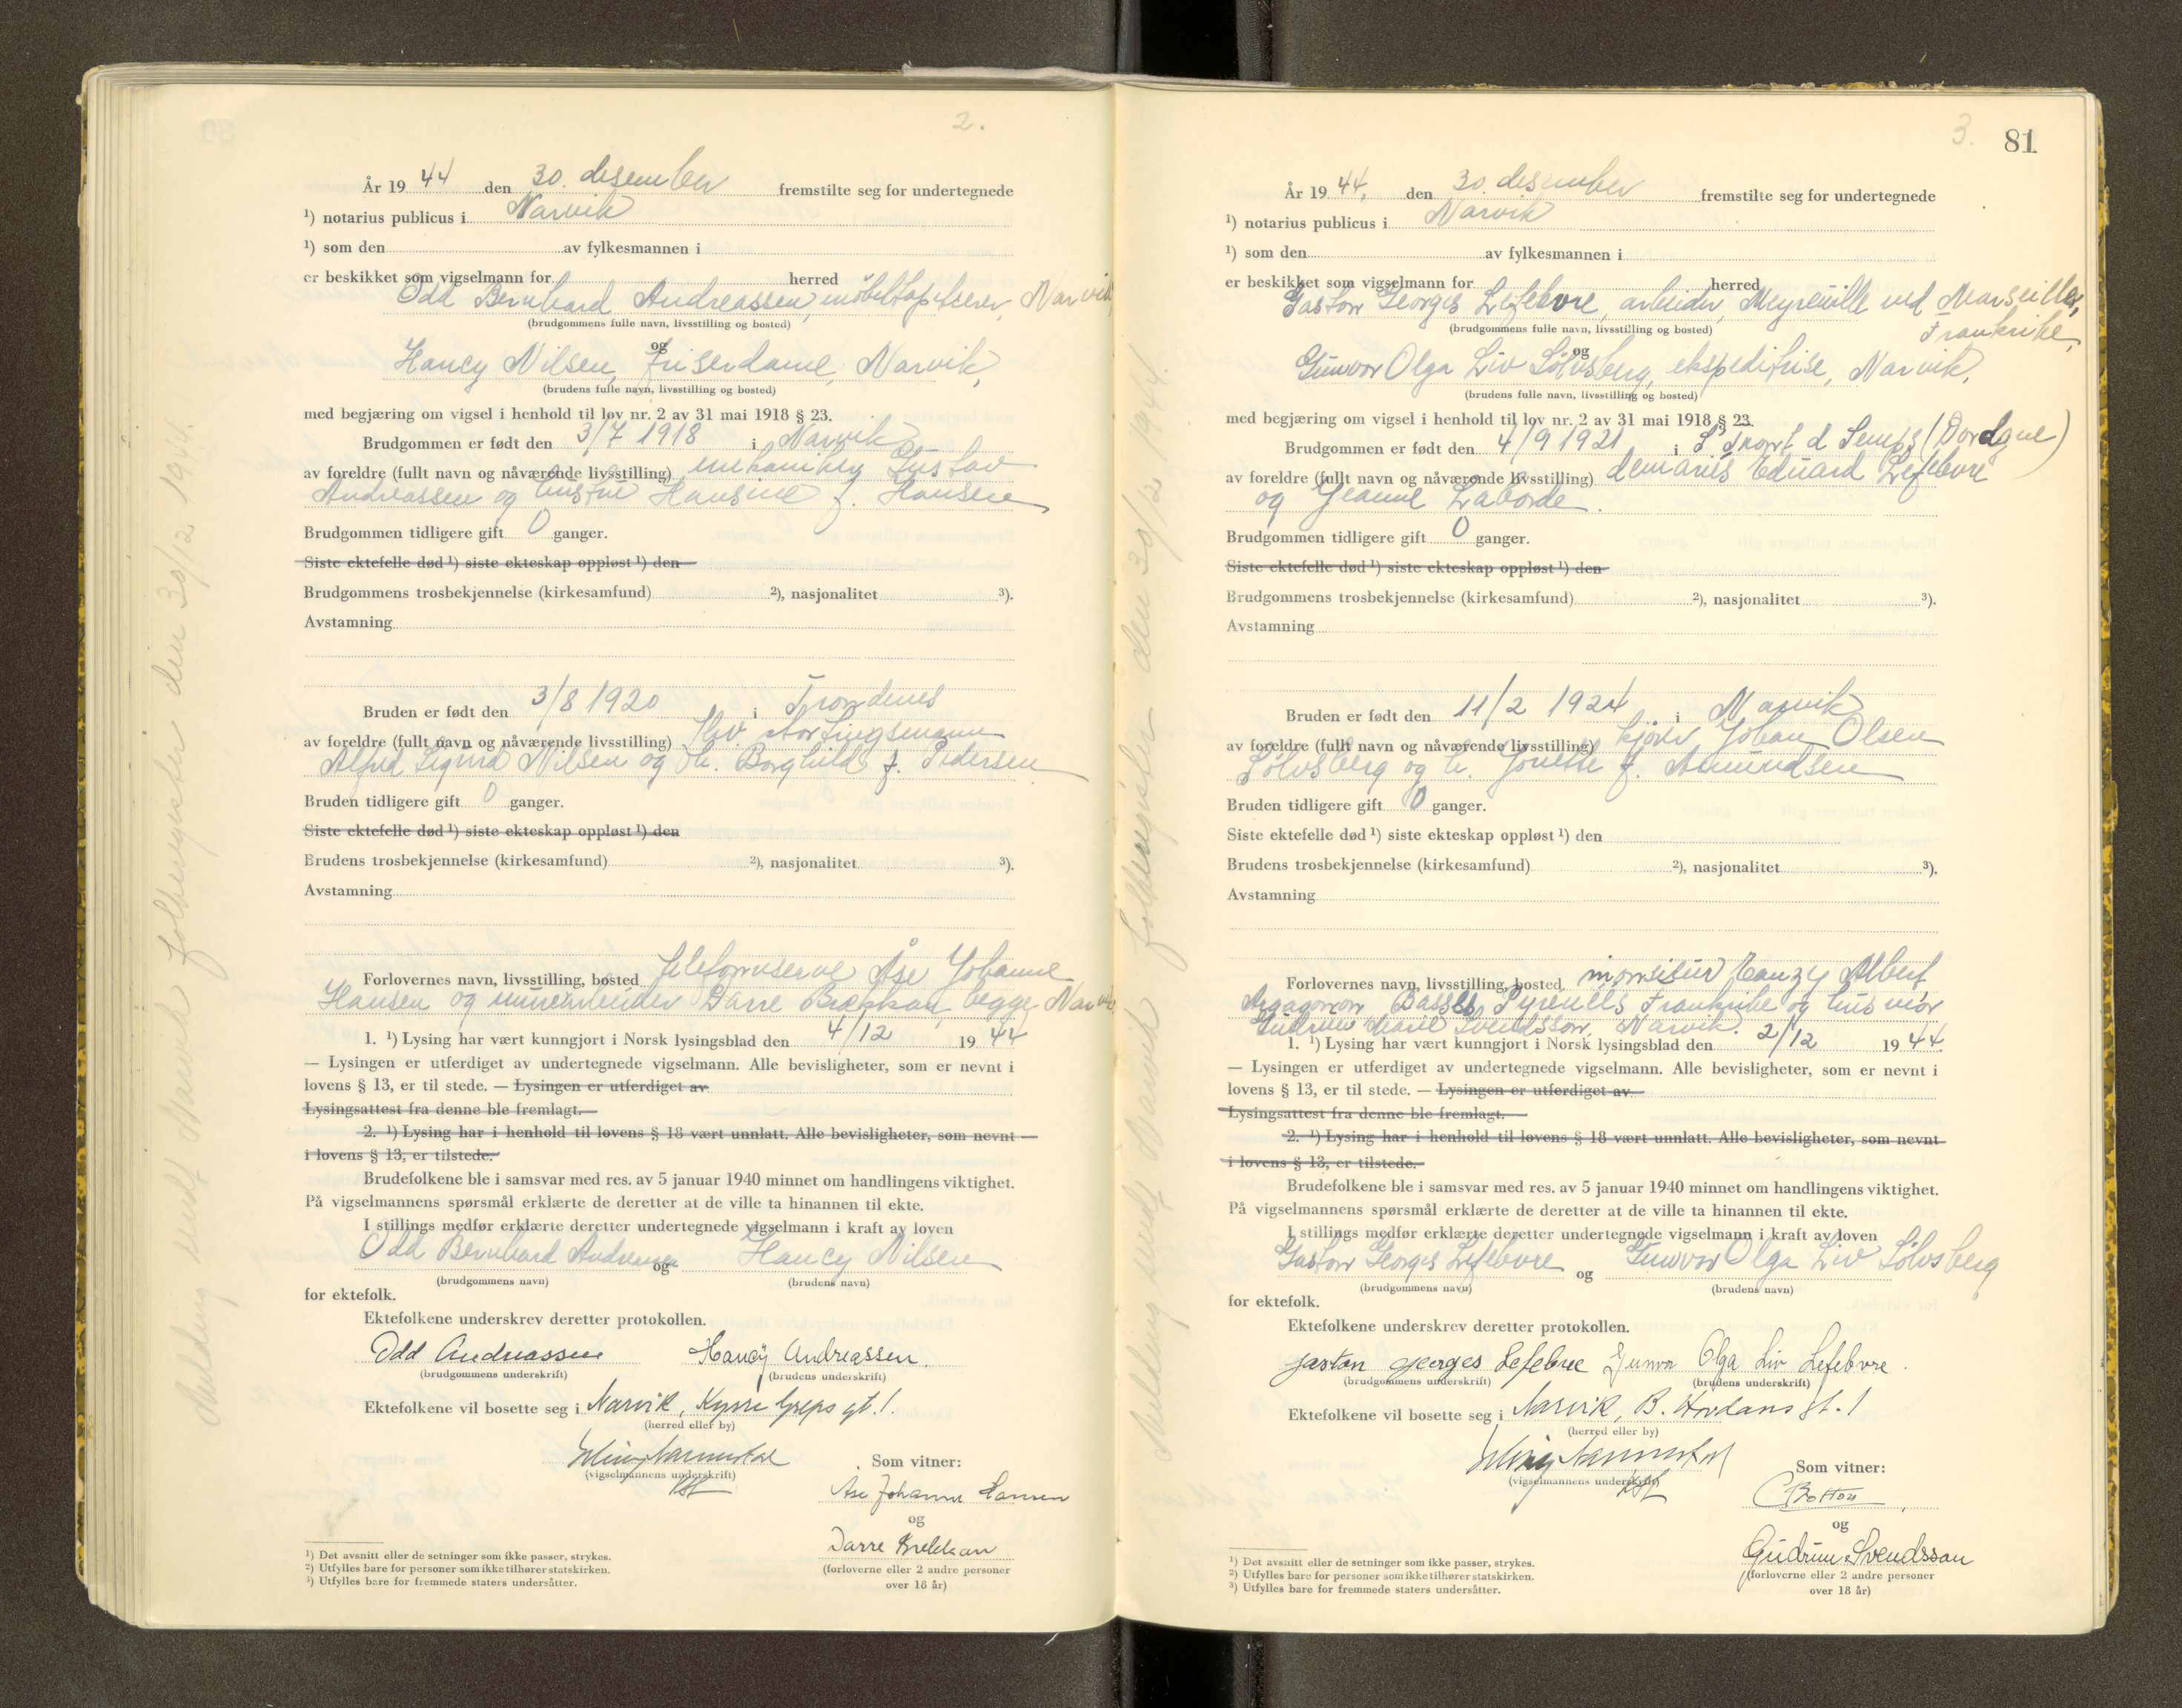 2.
År 19 44 den 30. desember fremstilte seg for undertegnede
¹) notarius publicus i Narvik
¹) som den av fylkesmannen i
er beskikket som vigselmann for herred
Odd Bernhard Andreassen, møbeltapetserer, Narvik
(brudgommens fulle navn, livsstilling og bosted)
og
Hancy Nilsen, friserdame, Narvik,
(brudens fulle navn, livsstilling og bosted)
med begjæring om vigsel i henhold til lov nr. 2 av 31 mai 1918 § 23.
Brudgommen er født den 3/7 1918 i Narvik
av foreldre (fullt navn og nåværende livsstilling) mekaniker Gustav
Andreassen og hustru Hansine f. Hansen
Brudgommen tidligere gift 0 ganger.
Siste ektefelle død ¹) siste ekteskap oppløst ¹) den
Brudgommens trosbekjennelse (kirkesamfund) ²), nasjonalitet ³).
Avstamning
Bruden er født den 3/8 1920 i Trondenes
av foreldre (fullt navn og nåværende livsstilling) stortingsmann
Alfred Sigurd Nilsen og h. Borghild f. Pedersen
Bruden tidligere gift 0 ganger.
Siste ektefelle død ¹) siste ekteskap oppløst ¹) den
Brudens trosbekjennelse (kirkesamfund) ²), nasjonalitet ³).
Avstamning
Forlovernes navn, livsstilling, bosted Åse Johanne
Hansen og murerarbeider Darre Brekkan, begge Narvik,
1. ¹) Lysing har vært kunngjort i Norsk lysingsblad den 4/12 19 44
— Lysingen er utferdiget av undertegnede vigselmann. Alle bevisligheter, som er nevnt i
lovens § 13, er til stede. — Lysingen er utferdiget av
Lysingsattest fra denne ble fremlagt.
2. ¹) Lysing har i henhold til lovens § 18 vært unnlatt. Alle bevisligheter, som nevnt
i lovens § 13, er tilstede.
Brudefolkene ble i samsvar med res. av 5 januar 1940 minnet om handlingens viktighet.
På vigselmannens spørsmål erklærte de deretter at de ville ta hinannen til ekte.
I stillings medfør erklærte deretter undertegnede vigselmann i kraft av loven
Odd Bernhard Andreassen og Hancy Nilsen
(brudgommens navn) (brudens navn)
for ektefolk.
Ektefolkene underskrev deretter protokollen.
Odd Andreassen Hancy Andreassen.
(brudgommens underskrift) (brudens underskrift)
Ektefolkene vil bosette seg i Narvik, Kyrre Greps gt. 1.
(herred eller by)
(vigselmannens underskrift)
Som vitner:
Åse Johanne Hansen
og
Darre Brekkan
(forloverne eller 2 andre personer
over 18 år)
¹) Det avsnitt eller de setninger som ikke passer, strykes.
²) Utfylles bare for personer som ikke tilhører statskirken.
³) Utfylles bare for fremmede staters undersåtter.
Melding sendt Narvik folkeregister den 30/12 1944.
3. 81
År 19 44, den 30. desember fremstilte seg for undertegnede
¹) notarius publicus i Narvik
¹) som den av fylkesmannen i
er beskikket som vigselmann for herred
Gaston Georges Lefebvre, arbeider, Meyreuille ved Marseilles,
Frankrike,
(brudgommens fulle navn, livsstilling og bosted)
og
Gunvor Olga Liv Sølvsberg, ekspeditrise, Narvik,
(brudens fulle navn, livsstilling og bosted)
med begjæring om vigsel i henhold til lov nr. 2 av 31 mai 1918 § 23.
Brudgommen er født den 4/9 1921 i (Dordgne)
av foreldre (fullt navn og nåværende livsstilling) Eduard Lefebvre
og Jeanne Laborde.
Brudgommen tidligere gift 0 ganger.
Siste ektefelle død ¹) siste ekteskap oppløst ¹) den
Brudgommens trosbekjennelse (kirkesamfund) ²), nasjonalitet ³).
Avstamning
Bruden er født den 11/2 1924 i Narvik
av foreldre (fullt navn og nåværende livsstilling) Johan Olsen
Sølvsberg og h. f. Amundsen
Bruden tidligere gift 0 ganger.
Siste ektefelle død ¹) siste ekteskap oppløst ¹) den
Brudens trosbekjennelse (kirkesamfund) ²), nasjonalitet ³).
Avstamning
Forlovernes navn, livsstilling, bosted Albert,
Basses Pyrenees Frankrike og husmor
Gudrun Marie Svendsson, Narvik.
1. ¹) Lysing har vært kunngjort i Norsk lysingsblad den 2/12 19 44.
— Lysingen er utferdiget av undertegnede vigselmann. Alle bevisligheter, som er nevnt i
lovens § 13, er til stede. — Lysingen er utferdiget av
Lysingsattest fra denne ble fremlagt.
2. ¹) Lysing har i henhold til lovens § 18 vært unnlatt. Alle bevisligheter, som nevnt
i lovens § 13, er tilstede.
Brudefolkene ble i samsvar med res. av 5 januar 1940 minnet om handlingens viktighet.
På vigselmannens spørsmål erklærte de deretter at de ville ta hinannen til ekte.
I stillings medfør erklærte deretter undertegnede vigselmann i kraft av loven
Gaston Georges Lefebvre og Gunvor Olga Liv Sølvsberg
(brudgommens navn) (brudens navn)
for ektefolk.
Ektefolkene underskrev deretter protokollen.
gaston georges Lefebvre Gunvor Olga Liv Lefebvre.
(brudgommens underskrift) (brudens underskrift)
Ektefolkene vil bosette seg i Narvik, B. Hordans gt. 1
(herred eller by)
(vigselmannens underskrift)
Som vitner:
og
Gudrun Svendsson
(forloverne eller 2 andre personer
over 18 år)
¹) Det avsnitt eller de setninger som ikke passer, strykes.
²) Utfylles bare for personer som ikke tilhører statskirken.
³) Utfylles bare for fremmede staters undersåtter.
Melding sendt Narvik folkeregister den 30/12 1944.